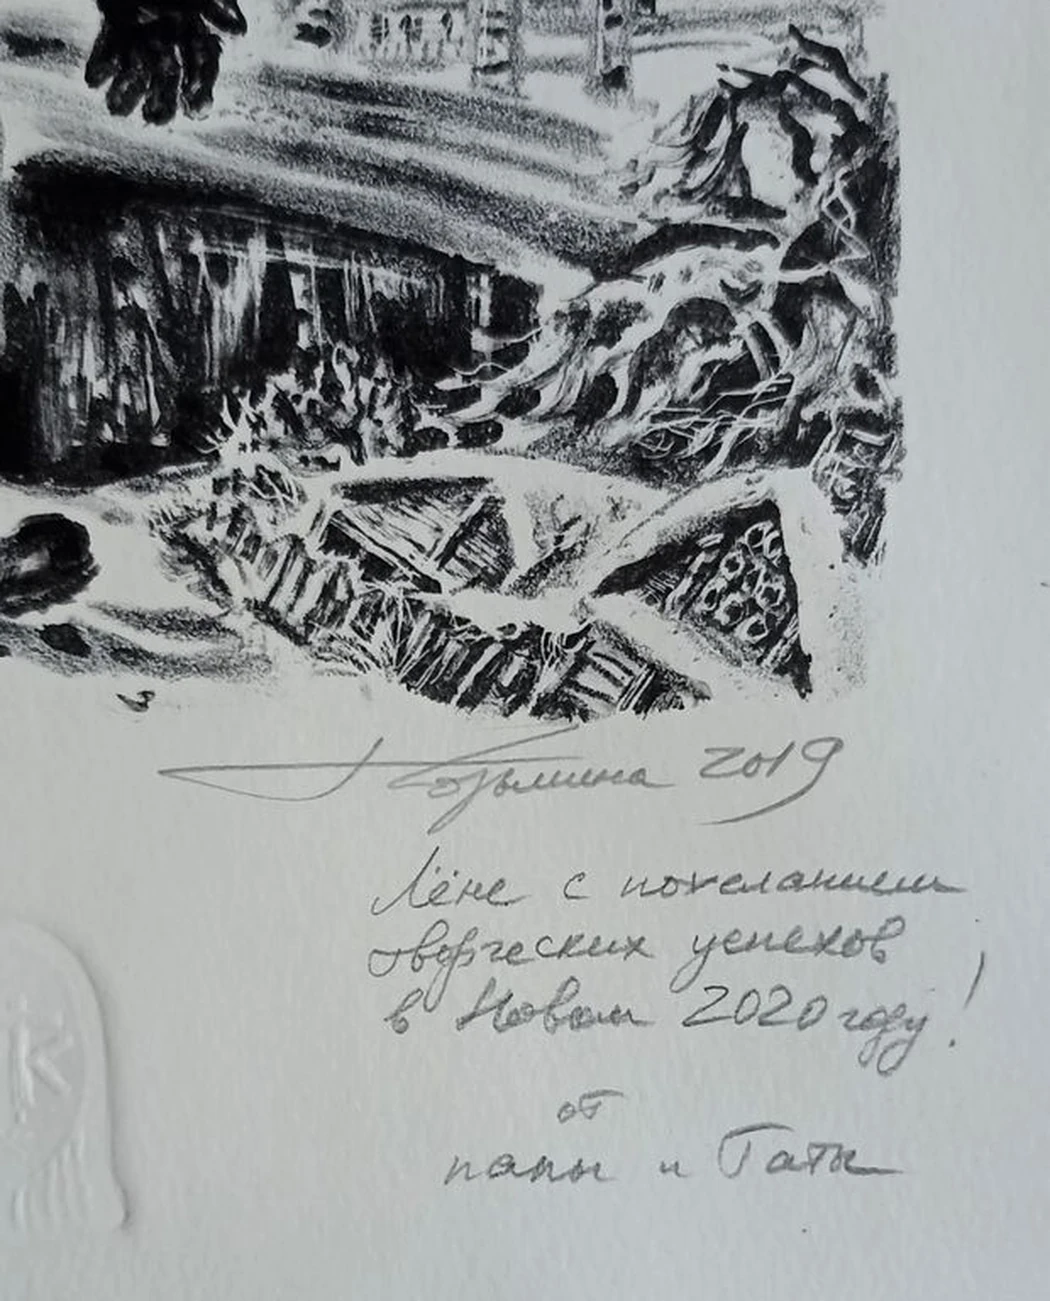 Козьмина 2019
Лёне с пожеланием
творческих успехов
в Новом 2020 году!
от
папы и Таты
К